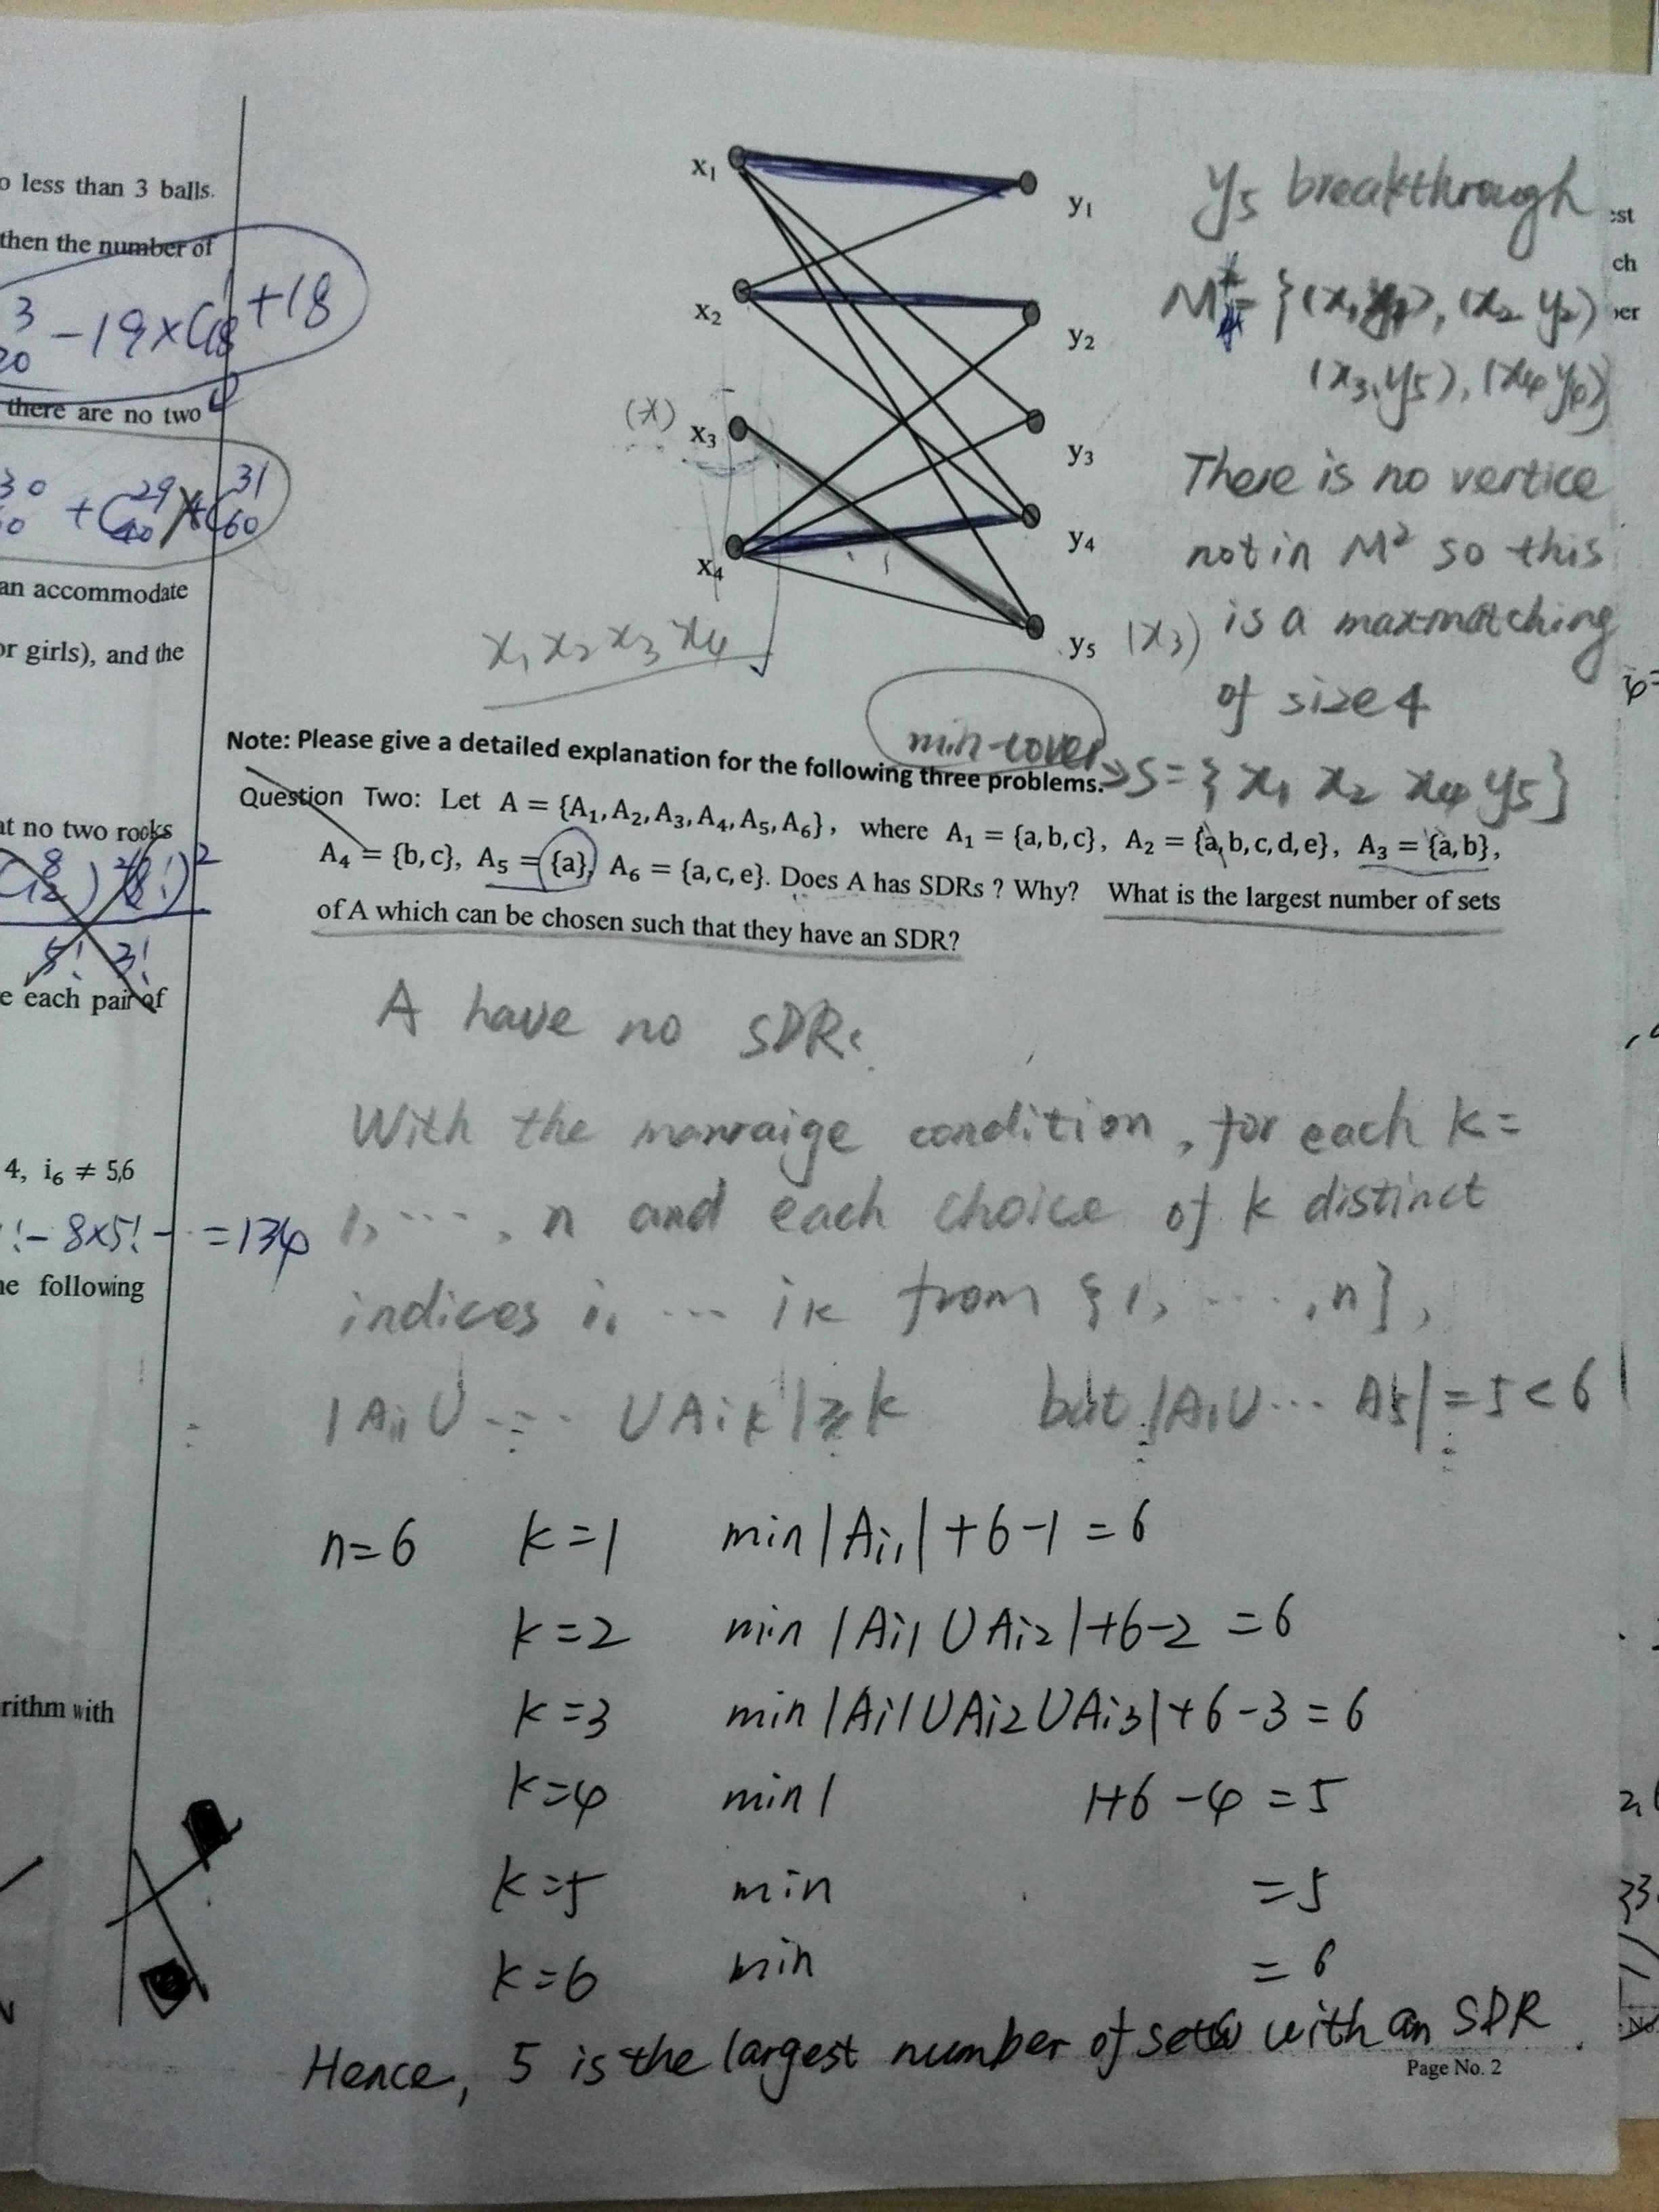 o less than 3 balls.
then the number of
3
20
-19×C
18
+18
there are no two
30
+C
29
40
31
60
an accommodate
or girls), and the
at no two rocks
5! 3!
e each pair of
4, i6 ≠ 5,6
!- 8×5! - ... =134
he following
rithm with
x1
x2
(x) x3
x4
y1
y2
y3
y4
y5 (x3)
x1 x2 x3 x4
y5 breakthrough
(x2 y2)
(x3, y5), (x4 y4)}
There is no vertice
not in M² so this
is a maxmatching
of size 4
min-cover
→ S = { x1 x2 x4 y5}
Note: Please give a detailed explanation for the following three problems.
Question Two: Let A = {A1, A2, A3, A4, A5, A6}, where A1 = {a, b, c}, A2 = {a, b, c, d, e}, A3 = {a, b},
A4 = {b, c}, A5 = {a}, A6 = {a, c, e}. Does A has SDRs ? Why? What is the largest number of sets
of A which can be chosen such that they have an SDR?
A have no SDR.
With the marraige condition, for each k =
1, ..., n and each choice of k distinct
indices i1 ... ik from {1, ..., n},
|Ai1 U ... UAik| ≥ k but |A1U... A5| = 5 < 6
n=6 k=1 min|Ai1|+6-1=6
k=2 min |Ai1 UAi2|+6-2 =6
k=3 min |Ai1UAi2UAi3|+6-3=6
k=4 min| |+6-4=5
k=5 min =5
k=6 min = 6
Hence, 5 is the largest number of sets with an SDR.
Page No. 2
st
ch
per